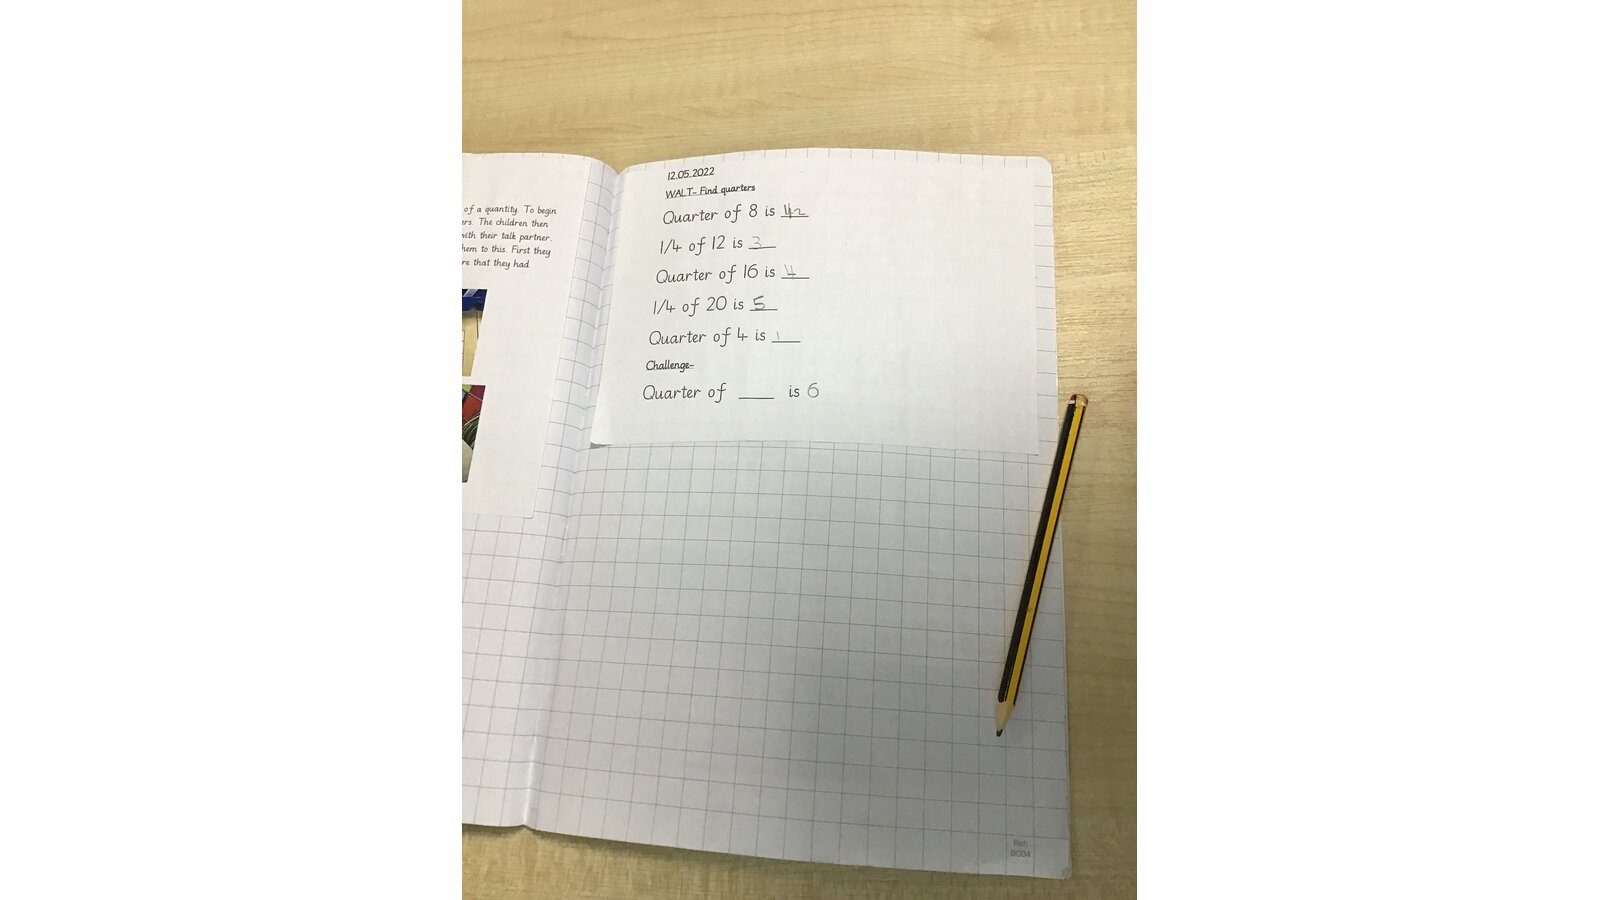 of a quantity. To begin
ers. The children then
with their talk partner.
hem to this. First they
re that they had
12.05.2022
WALT- Find quarters
Quarter of 8 is 42
1/4 of 12 is 3
Quarter of 16 is 4
1/4 of 20 is 5
Quarter of 4 is 1
Challenge-
Quarter of ____ is 6
Ref:
BO34